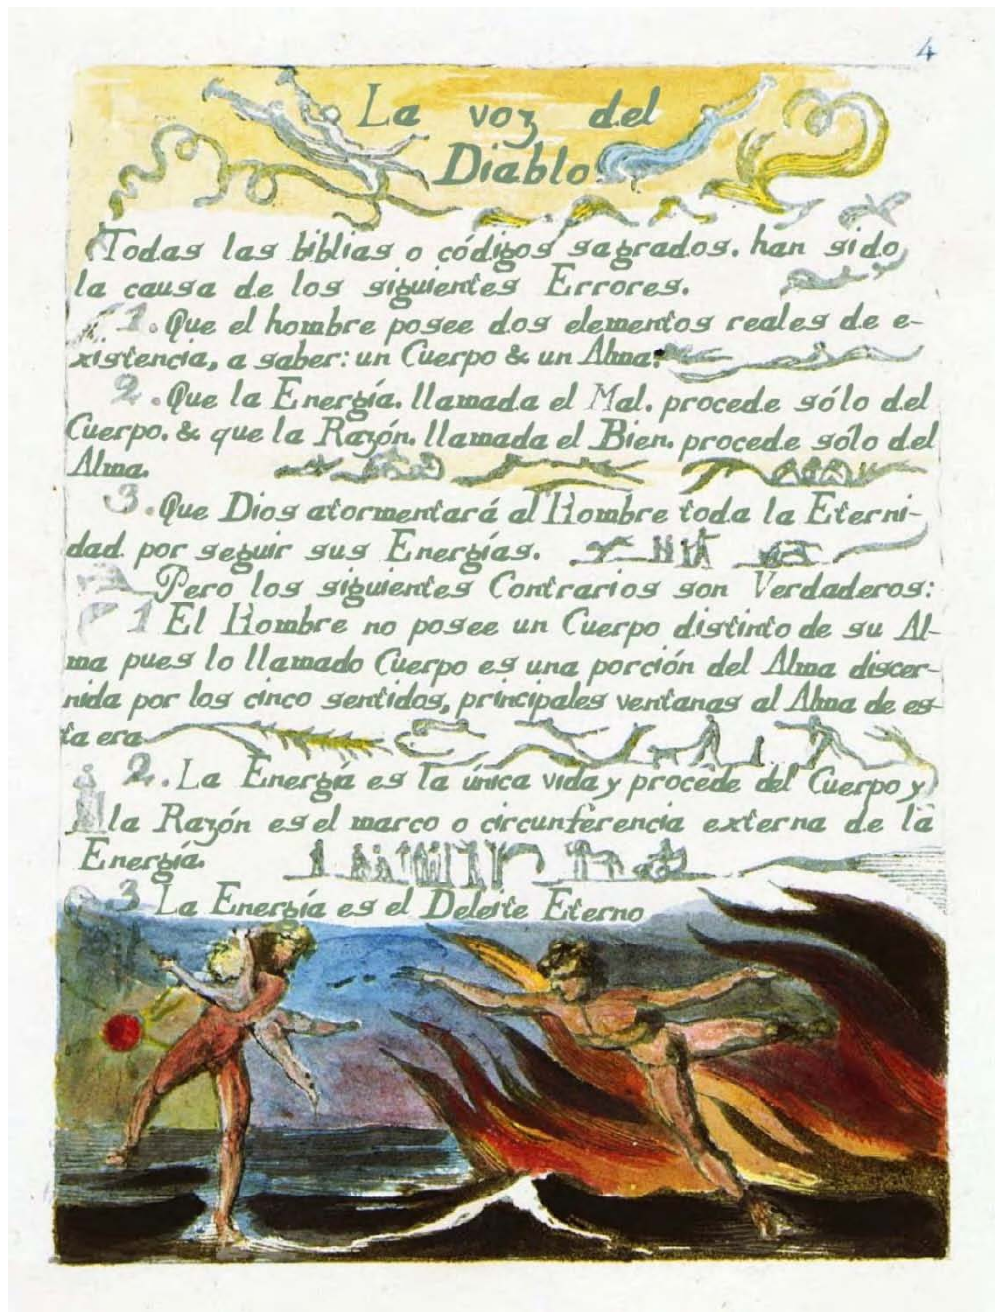 4
La voz del
Diablo
Todas las biblias o códigos sagrados. han sido
la causa de los siguientes Errores.
1. Que el hombre posee dos elementos reales de e-
xistencia, a saber: un Cuerpo & un Alma.
2. Que la Energía. llamada el Mal. procede sólo del
Cuerpo. & que la Razón. llamada el Bien. procede sólo del
Alma.
3. Que Dios atormentará al Hombre toda la Eterni-
dad por seguir sus Energías.
Pero los siguientes Contrarios son Verdaderos:
1 El Hombre no posee un Cuerpo distinto de su Al-
ma pues lo llamado Cuerpo es una porción del Alma discer-
nida por los cinco sentidos, principales ventanas al Alma de es-
ta era
2. La Energía es la única vida y procede del Cuerpo y
la Razón es el marco o circunferencia externa de la
Energía.
3 La Energía es el Deleite Eterno